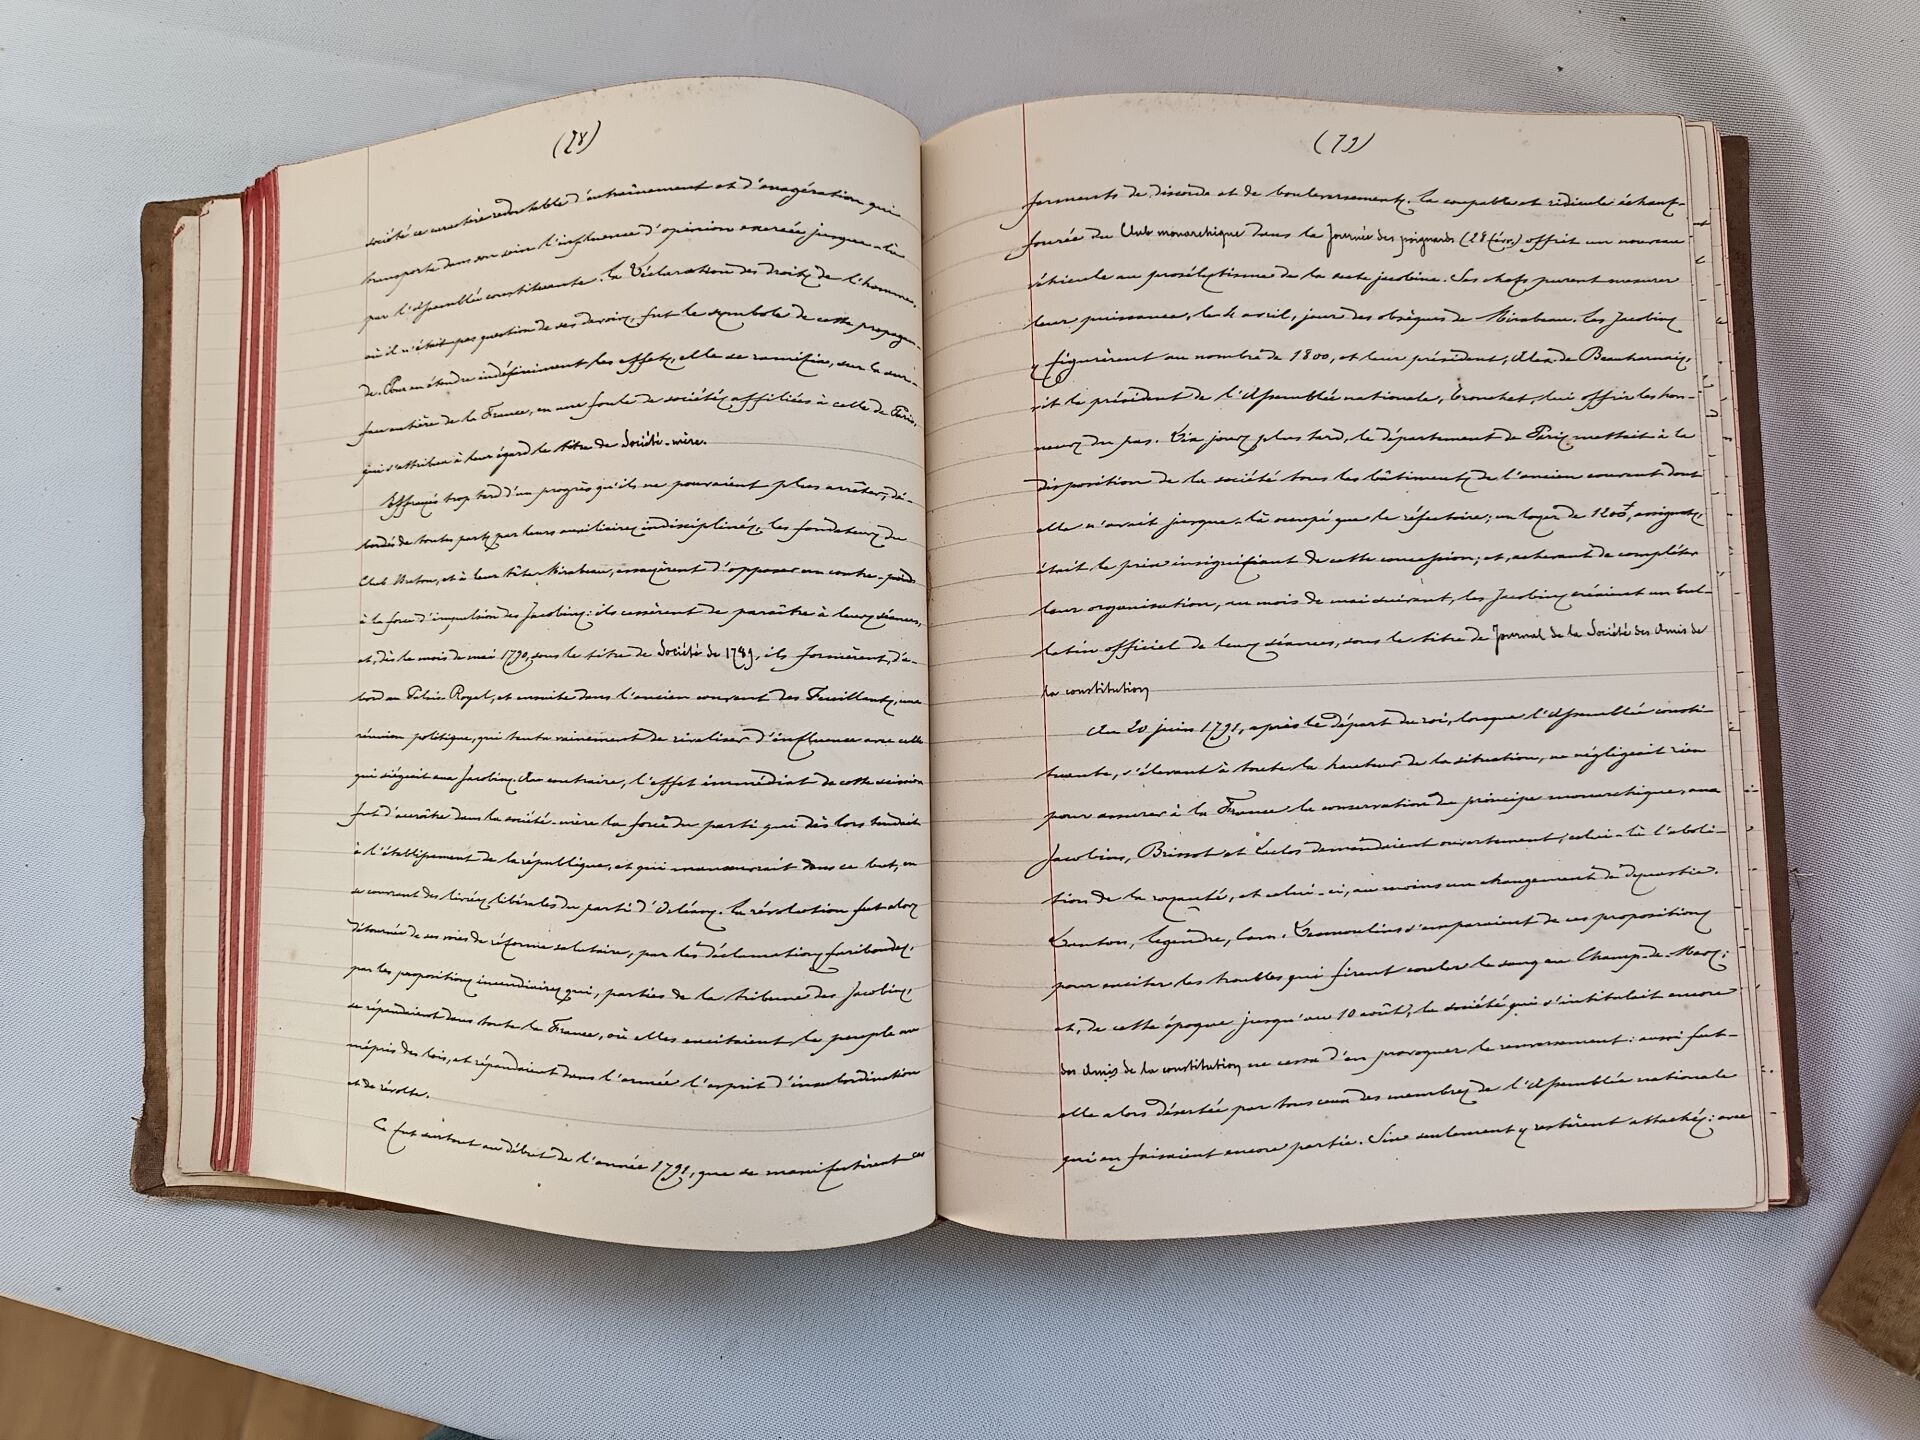 (78)
société ce caractère redoutable d'entraînement et d'exagération qui
transporta dans son sein l'influence d'opinion exercée jusque-là
par l'Assemblée constituante. La Déclaration des Droits de l'homme,
où il n'était pas question de ses devoirs, fut le symbole de cette propagan-
de. Pour en étendre indéfiniment les effets, elle se ramifia, sur la sur-
face entière de la France, en une foule de sociétés affiliées à celle de Paris,
qui s'attribua à leur égard le titre de Société-mère.
Effrayés trop tard d'un progrès qu'ils ne pouvaient plus arrêter, dé-
bordés de toutes parts par leurs auxiliaires indisciplinés, les fondateurs du
Club Breton, et à leur tête Mirabeau, essayèrent d'opposer un contre-poids
à la force d'impulsion des Jacobins: ils cessèrent de paraître à leurs séances,
et, dès le mois de mai 1790, sous le titre de Société de 1789, ils formèrent, d'a-
bord au Palais-Royal, et ensuite dans l'ancien couvent des Feuillants, une
réunion politique, qui tenta vainement de rivaliser d'influence avec celle
qui siégeait aux Jacobins. Au contraire, l'effet immédiat de cette scission
fut d'accroître dans la société-mère la force du parti qui dès lors tendait
à l'établissement de la république, et qui manœuvrait dans ce but, en
se couvrant des livrées libérales du parti d'Orléans. La révolution fut alors
détournée de ses voies de réforme salutaire, par les déclamations furibondes,
par les propositions incendiaires qui, parties de la tribune des Jacobins,
se répandaient dans toute la France, où elles excitaient le peuple au
mépris des lois, et répandaient dans l'armée l'esprit d'insubordination
et de révolte.
Ce fut surtout au début de l'année 1791, que se manifestèrent ces
(79)
ferments de discorde et de bouleversements. La coupable et ridicule échauf-
fourée du Club monarchique dans la Journée des poignards (28 févr.) offrit un nouveau
véhicule au prosélytisme de la secte jacobine. Ses chefs purent mesurer
leur puissance, le 4 avril, jour des obsèques de Mirabeau. Les Jacobins
y figurèrent au nombre de 1800, et leur président, Alex. de Beauharnais,
vit le président de l'Assemblée nationale, Tronchet, lui offrir les hon-
neurs du pas. Dix jours plus tard, le département de Paris mettait à la
disposition de la société tous les bâtiments de l'ancien couvent dont
elle n'avait jusque-là occupé que le réfectoire; un loyer de 1200f, assignats,
était le prix insignifiant de cette concession; et, achevant de compléter
leur organisation, au mois de mai suivant, les Jacobins créaient un bul-
letin officiel de leurs séances, sous le titre de Journal de la Société des Amis de
la constitution
Au 20 juin 1791, après le départ du roi, lorsque l'Assemblée consti-
tuante, s'élevant à toute la hauteur de la situation, ne négligeait rien
pour assurer à la France la conservation du principe monarchique, aux
Jacobins, Brissot et Laclos demandaient ouvertement, celui-là l'aboli-
tion de la royauté, et celui-ci, au moins un changement de dynastie.
Danton, Legendre, Cam. Desmoulins s'emparaient de ces propositions
pour exciter les troubles qui firent couler le sang au Champ-de-Mars;
et, de cette époque jusqu'au 10 août, la société qui s'intitulait encore
des Amis de la constitution ne cessa d'en provoquer le renversement: aussi fut-
elle alors désertée par tous ceux des membres de l'Assemblée nationale
qui en faisaient encore partie. Six seulement y restèrent attachés: avec